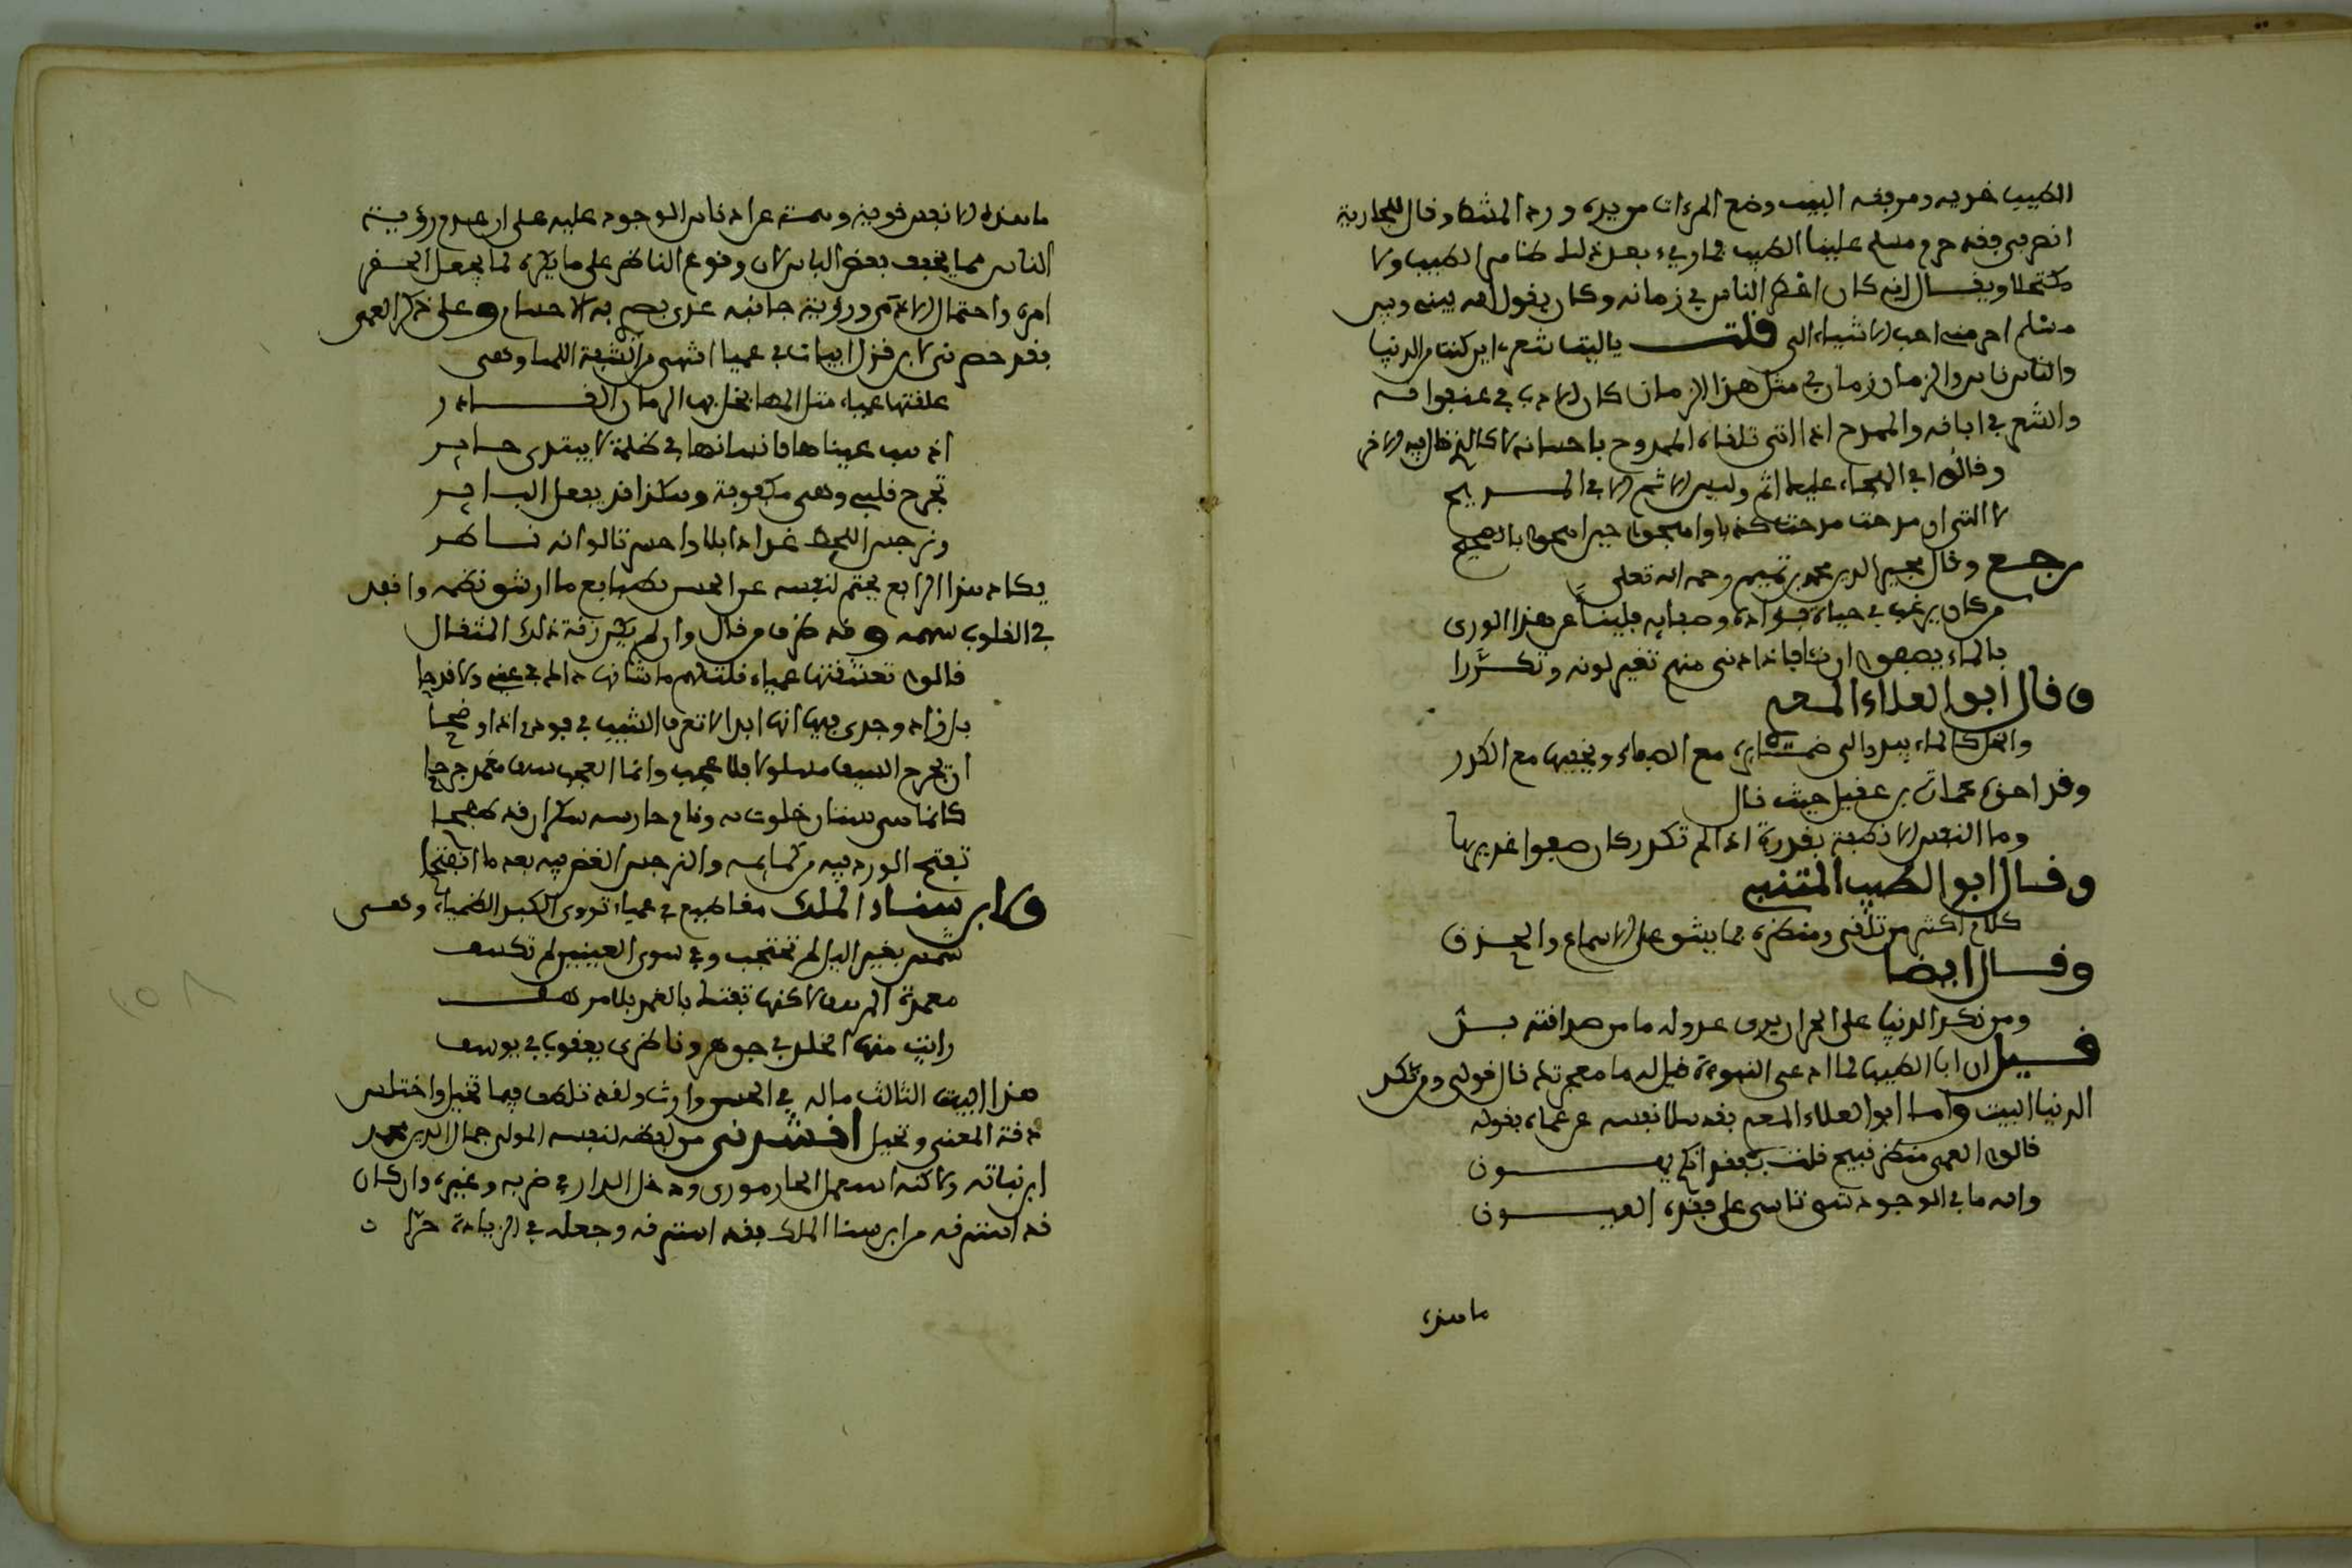 الطبيب خديه ومرفقه البيت وضع المرءات من يده ورد المشط وقال للجارية
انصرفي فقد حرم مسلم علينا الطيب فما رءي بعد ذلك طامس الطيب ولا
مكتحلا ويقال انه كان اعظم الناس في زمانه وكان يقول انه بيني وبين
مسلم احر منه احب الاشياء الي قلت ياليتنا شعري اين كنت من الدنيا
والناس ناس والزمان زمان في مثل هذا الزمان كان الادب في عنفوانه
والشعر في ابانه والممدح اذا اتى تلقاه الممدوح باحسانه لا كالذي قال فيه الاخر
وقالوا في الهجاء عليك اثم وليس الاثم الا في المديح
لاني ان مدحت مدحت كذبا واهجو حين اهجو بالصحيح
رجع وقال مجير الدين محمد بن تميم رحمه الله تعلى
من كان يرغب في حياة فؤاده وصفايه فلينأ عن هذا الورى
بالماء يصفو ان نأى فاذا دنى منهم تغير لونه وتكدرا
وقال ابو العلاء المعري
والخل كالماء يبدي لي ضمائره مع الصفاء ويخفيها مع الكدر
وقد اخذه عمارة بن عقيل حيث قال
وما النفس الا نطفة بقرارة اذا لم تكدر كان صفوا غديرها
وقال ابو الطيب المتنبي
كلام اكثر من تلقى ومنظره مما يشق على الاسماع والحدق
وقال ايضا
ومن نكد الدنيا على الحر ان يرى عدوا له ما من صداقته بد
قيل ان ابا الطيب لما ادعى النبوءة قيل له ما معجزتك قال قولي ومن نكد
الدنيا البيت واما ابو العلاء المعري فقد سلا نفسه عن عماه بقوله
قالوا العمى منظر قبيح قلت بفقدانكم يهون
والله ما في الوجود شي تاسى على فقده العيون
ما هذه
ما هذه الا نفس قوية وهمة عن اذناس الوجود علية على ان عدم رؤية
الناس مما يخفف بعض الباس لان وقوع الناظر على ما يكره لما يجعل الحسن
امره واحتمال الاذى ورؤية جانيه غذى يضى به الاجسام وعلى ذكر العمى
فقد حضرني لابن قزل ابيات في عميا اشهى من الشفة اللميا وهي
علقتها عمياء مثل المها فخان فيها الزمان الغادر
اذهب عيناها فانسانها في ظلمة لا يهتدي حاير
تجرح قلبي وهي مكفوفة وهكذا قد يفعل الباتر
ونرجس اللحظ غدا ذابلا واحسرتا لو انه ناظر
يكاد هذا الرابع يختم لنفسه عن الحسن بطبايع ما ارشق نظمه وانفذ
في القلوب سهمه وقد ظرف من قال وان لم يكن رقة ذلك المثقال
قالوا تعشقتها عمياء قلت لهم ما شانها ذاك في عيني ولا قدحا
بل زاد وجدي فيها انها ابدا لا تعرف الشيب في فودي اذا وضحا
ان يجرح السيف مسلولا فلا عجب وانما العجب سيف مغمد جرحا
كانما هي بستان خلوت به ونام حارسه سكران قد طفحا
تفتح الورد فيه من كمايمه والنرجس الغض فيه بعد ما انفتحا
ولابن سناء الملك مقاطيع في عمياء تروي الكبد الظمياء وهي
شمس بغير الليل لم تحتجب وفي سوى العينين لم تكسف
مغمدة المرهف لكنها تفتك بالغمد بلا مرهف
رايت منها الخلد في جوهر وناظري يعقوب في يوسف
هذا البيت الثالث ما له في الحسن وارث ولقد تلطف فيما تخيل واختلس
دقة المعنى وتحيل انشدني من لفظه لنفسه المولى جمال الدين محمد
ابن نباته ولاكنه استعمل الحار موري ودخل الدار في ضربه وغيره وان كان
قد استرقه من ابن سنا الملك فقد استرقه وجعله في الزيادة حرا